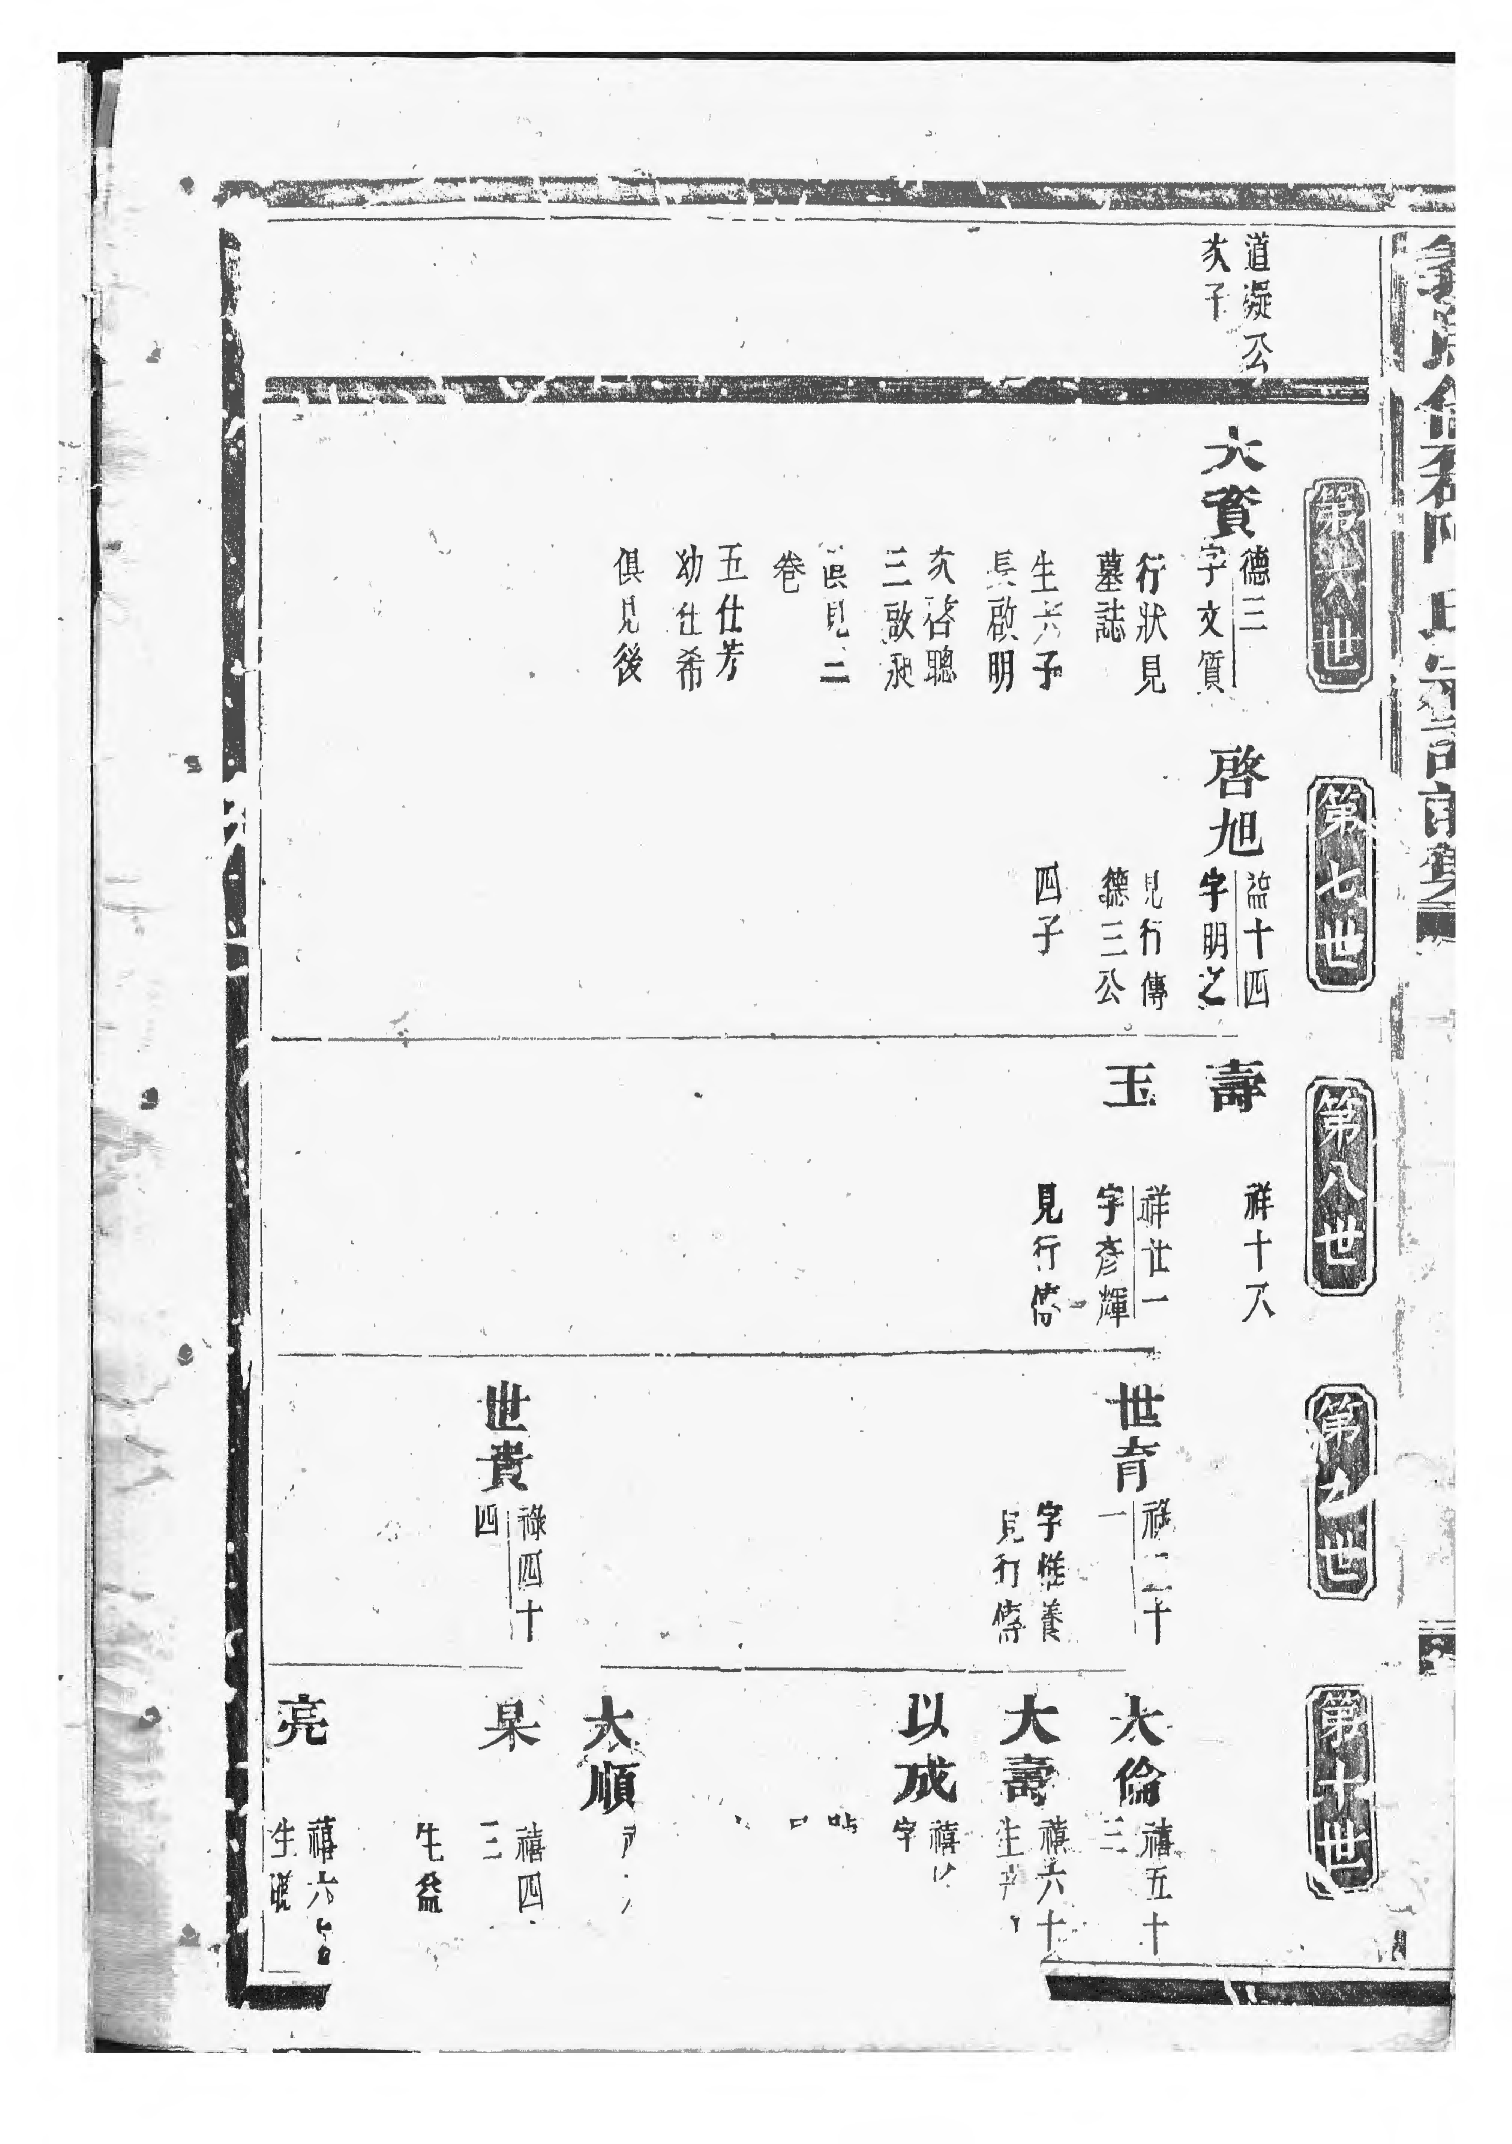 道凝公
次子
第六世
大賚
德三
字文質
行狀見
墓誌
生六子
長啟明
次啓聰
三啟
俱見二
卷
五仕芳
幼仕希
俱見後
第七世
啓旭
益十四
字明之
見行傳
德三公
四子
第八世
壽
祥十八
玉
祥廿一
字彥輝
見行傳
第九世
世育
祿二十
一
字惟養
見行傳
世貴
祿四十
四
第十世
大倫
禧五十
三
大壽
禧六十
生
以成
禧
字
大順
杲
禧四
三
生益
亮
禧六
生